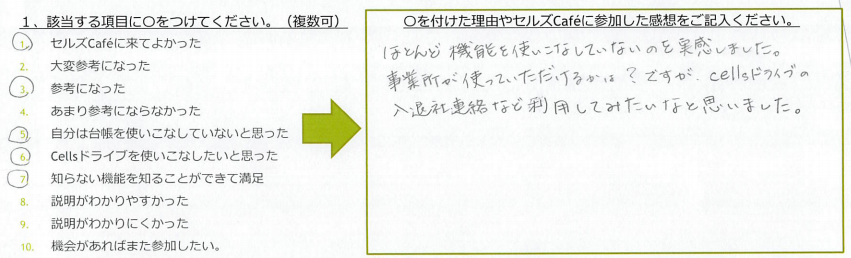 １、該当する項目に〇をつけてください。（複数可）
1. セルズCaféに来てよかった
2. 大変参考になった
3. 参考になった
4. あまり参考にならなかった
5. 自分は台帳を使いこなしていないと思った
6. Cellsドライブを使いこなしたいと思った
7. 知らない機能を知ることができて満足
8. 説明がわかりやすかった
9. 説明がわかりにくかった
10. 機会があればまた参加したい。
〇を付けた理由やセルズCaféに参加した感想をご記入ください。
ほとんど機能を使いこなしていないのを実感しました。
事業所が使っていただけるかは？ですが、cellsドライブの
入退社連絡など利用してみたいなと思いました。